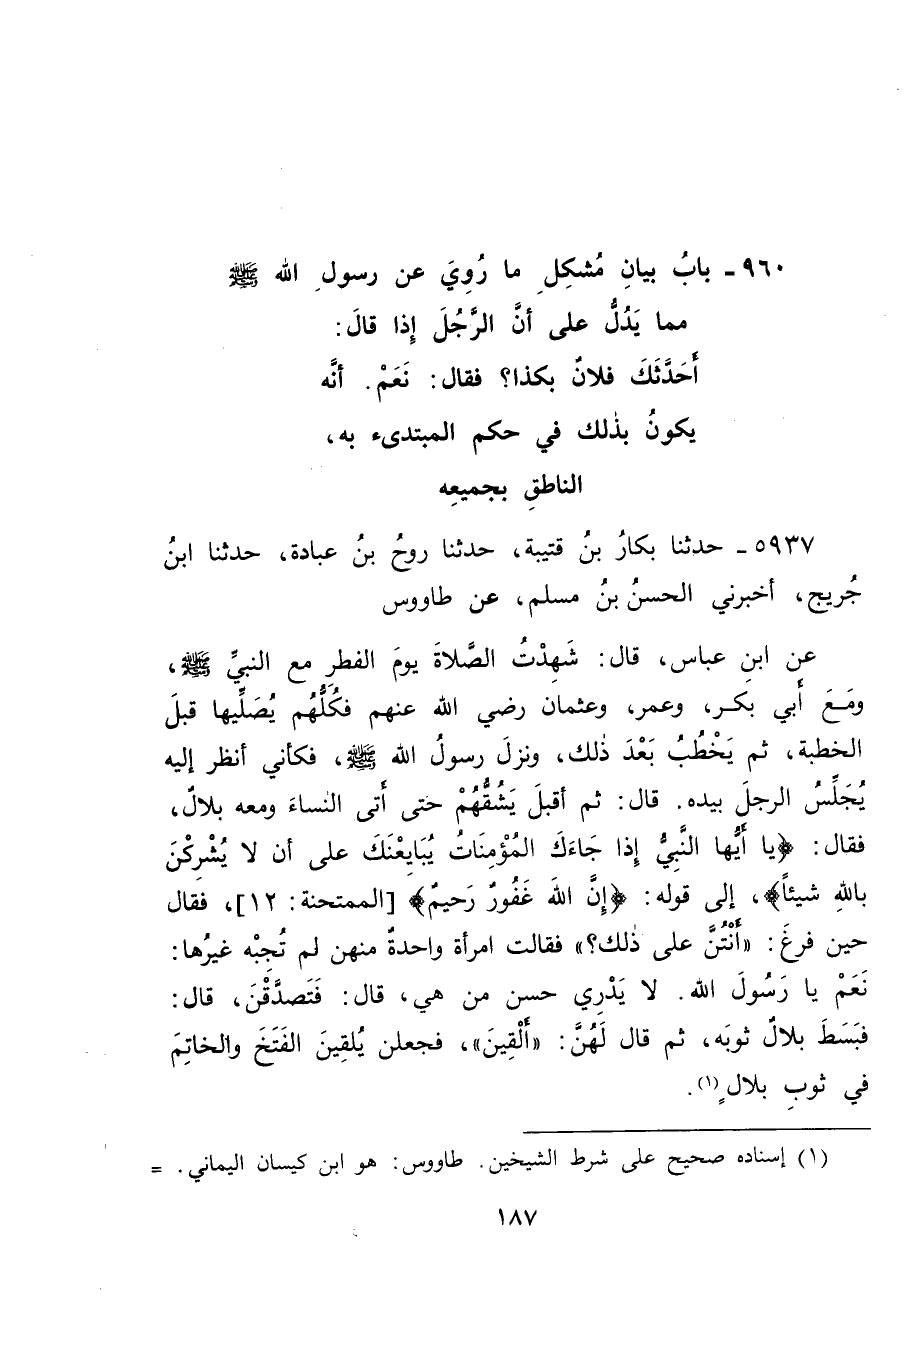 ٩٦٠ ـ بابُ بيانِ مُشكِلِ ما رُوِيَ عن رسولِ الله ﷺ
مما يَدُلُّ على أنَّ الرَّجُلَ إِذا قالَ:
أَحَدَّثَكَ فلانٌ بكذا؟ فقال: نَعَمْ. أنَّه
يكونُ بذٰلك في حكم المبتدىء به،
الناطقِ بجميعِه
٥٩٣٧ ـ حدثنا بكارُ بنُ قتيبة، حدثنا روحُ بنُ عبادة، حدثنا ابنُ
جُريج، أخبرني الحسنُ بنُ مسلم، عن طاووس
عن ابنِ عباس، قال: شَهِدْتُ الصَّلاةَ يومَ الفطر مع النبيِّ ﷺ،
ومَعَ أَبي بكر، وعمر، وعثمان رضي الله عنهم فكُلُّهُم يُصَلِّيها قبلَ
الخطبة، ثم يَخْطُبُ بَعْدَ ذٰلك، ونزلَ رسولُ الله ﷺ، فكأني أنظر إليه
يُجَلِّسُ الرجلَ بيده. قال: ثم أقبلَ يَشُقُّهُمْ حتى أَتى النساءَ ومعه بلالٌ،
فقال: ﴿يا أَيُّها النَّبِيُّ إِذا جَاءَكَ المُؤْمِنَاتُ يُبَايِعْنَكَ على أن لا يُشْرِكْنَ
باللهِ شيئاً﴾، إلى قوله: ﴿إِنَّ اللهَ غَفُورٌ رَحيمٌ﴾ [الممتحنة: ١٢]، فقال
حين فرغَ: «أَنْتُنَّ على ذٰلك؟» فقالت امرأة واحدةٌ منهن لم تُجِبْه غيرُها:
نَعَمْ يا رَسُولَ الله. لا يَدْرِي حسن من هي، قال: فَتَصدَّقْنَ، قال:
فبَسَطَ بلالٌ ثوبَه، ثم قال لَهُنَّ: «أَلْقِينَ»، فجعلن يُلقِينَ الفَتَخَ والخاتِمَ
في ثوبِ بلالٍ(١).
(١) إسناده صحيح على شرط الشيخين. طاووس: هو ابن كيسان اليماني. =
١٨٧